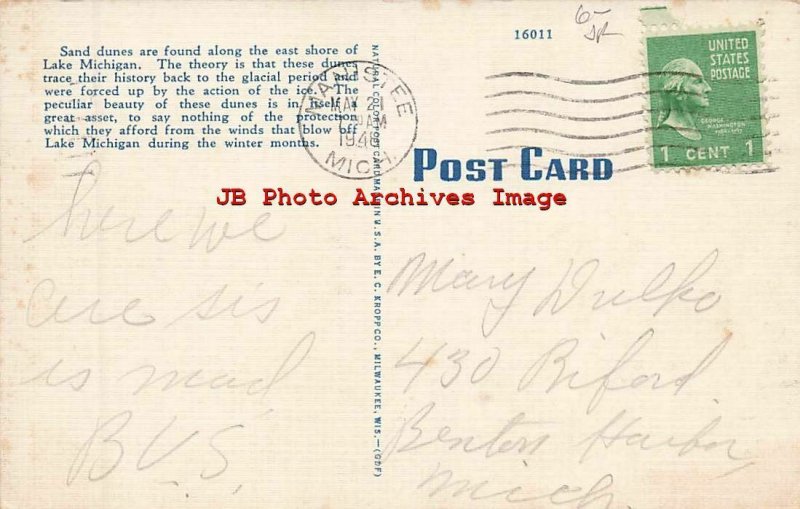 16011
6-
UNITED
STATES
POSTAGE
GEORGE
WASHINGTON
1 CENT 1
Sand dunes are found along the east shore of
Lake Michigan. The theory is that these dunes
trace their history back to the glacial period and
were forced up by the action of the ice. The
peculiar beauty of these dunes is in itself a
great asset, to say nothing of the protection
which they afford from the winds that blow off
Lake Michigan during the winter months.
MANISTEE
MAY
AM
MICH.
POST CARD
JB Photo Archives Image
NATURAL COLOR POST CARD MADE IN U.S.A. BY E. C. KROPP CO., MILWAUKEE, WIS.—(GDF)
here we
are sis
is mad
B.V.S.
Mary Dulko
430 Biford
Benton Harbor,
Mich.